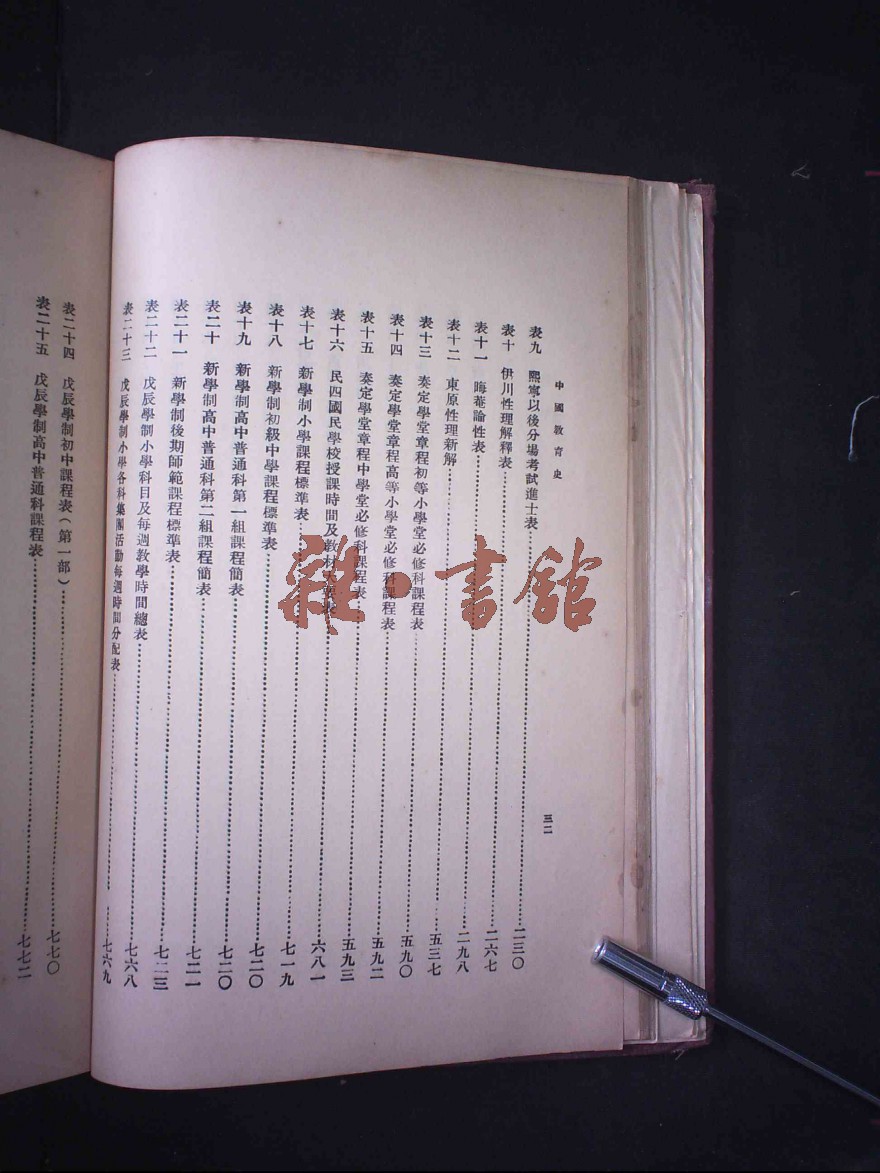 中國教育史
三二
表九 熙寧以後分場考試進士表……二三〇
表十 伊川性理解釋表……二六七
表十一 晦菴論性表……二九八
表十二 東原性理新解……五三七
表十三 奏定學堂章程初等小學堂必修科課程表……五九〇
表十四 奏定學堂章程高等小學堂必修科課程表……五九二
表十五 奏定學堂章程中學堂必修科課程表……五九三
表十六 民四國民學校授課時間及教材大要表……六八一
表十七 新學制小學課程標準表……七一九
表十八 新學制初級中學課程標準表……七二〇
表十九 新學制高中普通科第一組課程簡表……七二〇
表二十 新學制高中普通科第二組課程簡表……七二一
表二十一 新學制後期師範課程標準表……七二三
表二十二 戊辰學制小學科目及每週教學時間總表……七六八
表二十三 戊辰學制小學各科集團活動每週時間分配表……七六九
表二十四 戊辰學制初中課程表(第一部)……七七〇
表二十五 戊辰學制高中普通科課程表……七七二
雜·書館